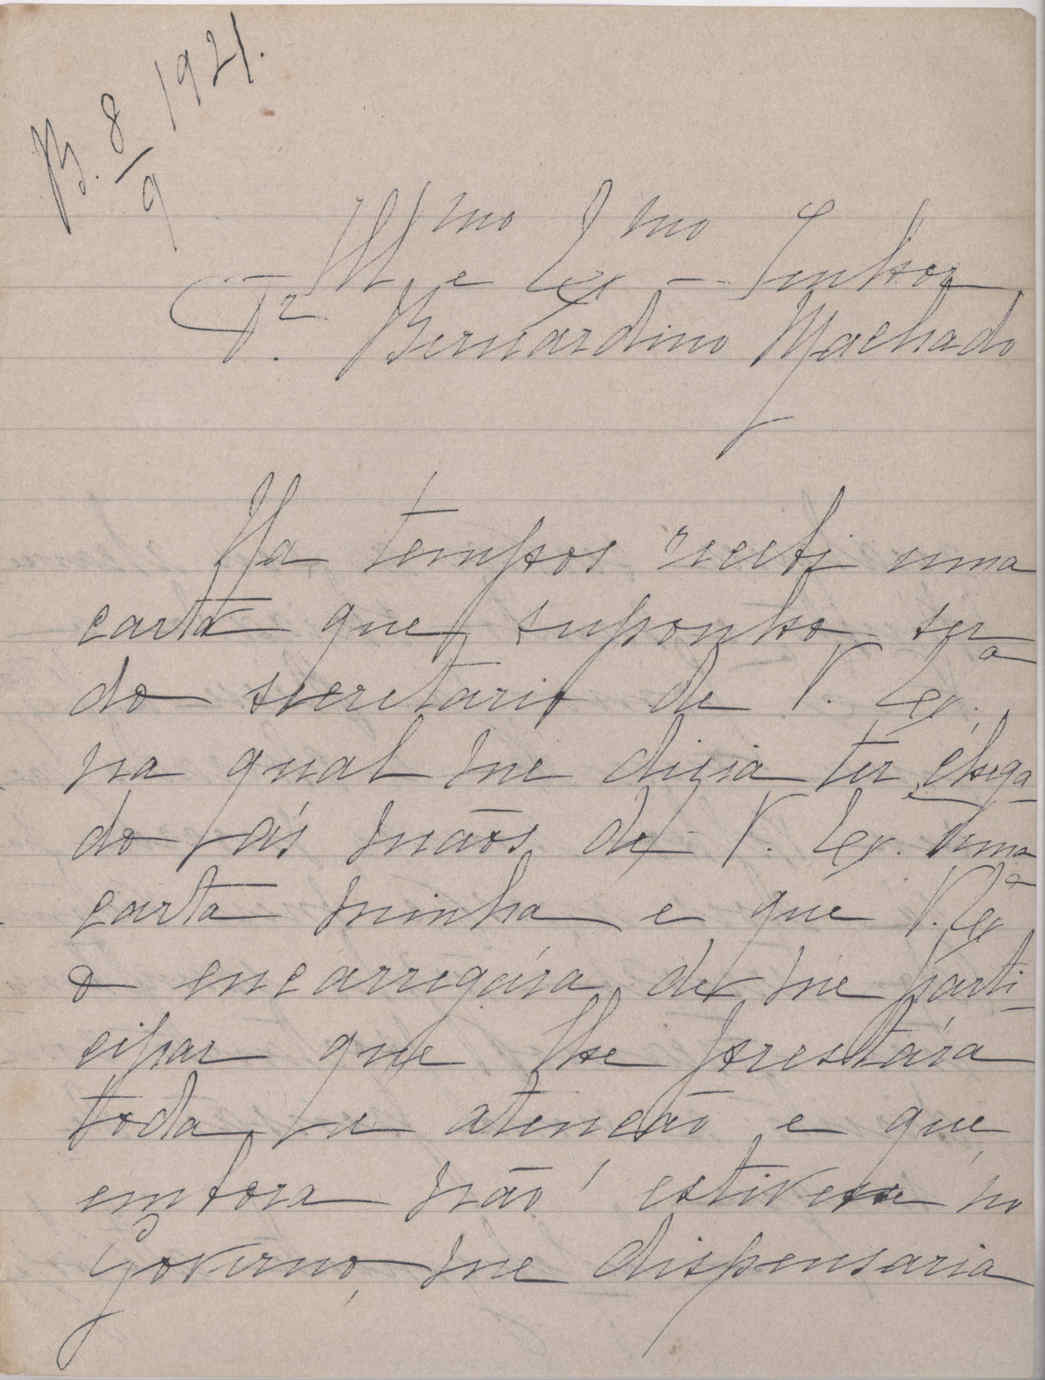 B. 8/9 1921.
Ill.mo e Ex.mo Senhor
Dr. Bernardino Machado
Ha tempos recebi uma
carta que suponho ser
do secretario de V. Ex.a,
na qual me dizia ter chega
do ás mãos de V. Ex. uma
carta minha e que V. Ex.a
o encarregára de me parti
cipar que lhe prestára
toda a atenção e que,
embora não estivesse no
Governo, me dispensaria